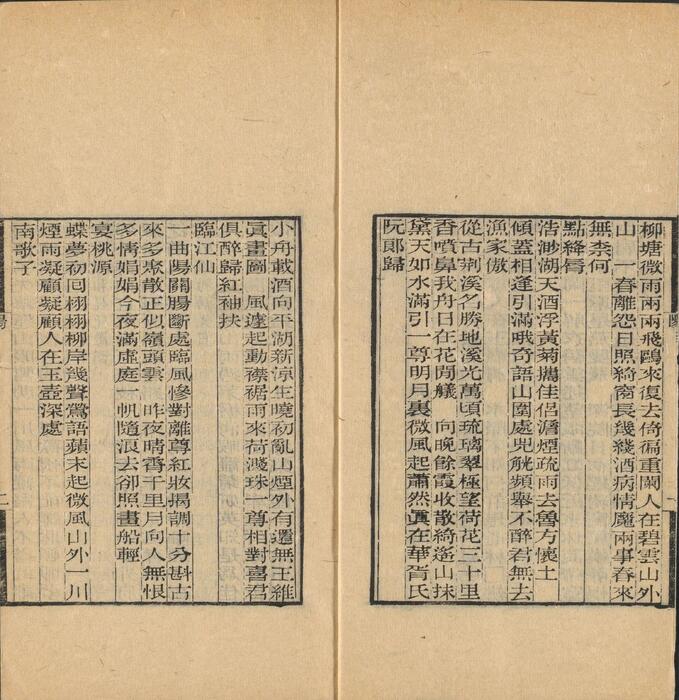 柳塘微雨兩兩飛鷗來復去倚徧重闌人在碧雲山外
山　一春離怨日照綺窗長幾綫酒病情魔兩事春來
無柰何
點絳脣
浩渺湖天酒浮黃菊攜佳侶澹煙疏雨去魯方懷土
傾蓋相逢引滿哦奇語山圍處兕觥頻舉不醉君無去
漁家傲
從古荆溪名勝地溪光萬頃琉璃翠極望荷花三十里
香噴鼻我舟日在花閒艤　向晚餘霞收散綺遙山抹
黛天如水滿引一尊明月裏微風起蕭然眞在華胥氏
阮郞歸
小舟載酒向平湖新涼生曉初亂山煙外有還無王維
眞畫圖　風遽起動襟裾雨來荷濺珠一尊相對喜君
俱醉歸紅袖扶
臨江仙
一曲陽關腸斷處臨風慘對離尊紅妝揭調十分斟古
來多聚散正似嶺頭雲　昨夜晴霄千里月向人無恨
多情娟娟今夜滿虛庭一帆隨浪去卻照畫船輕
宴桃源
蝶夢初回栩栩柳岸幾聲鶯語蘋末起微風山外一川
煙雨凝顧凝顧人在玉壺深處
南歌子